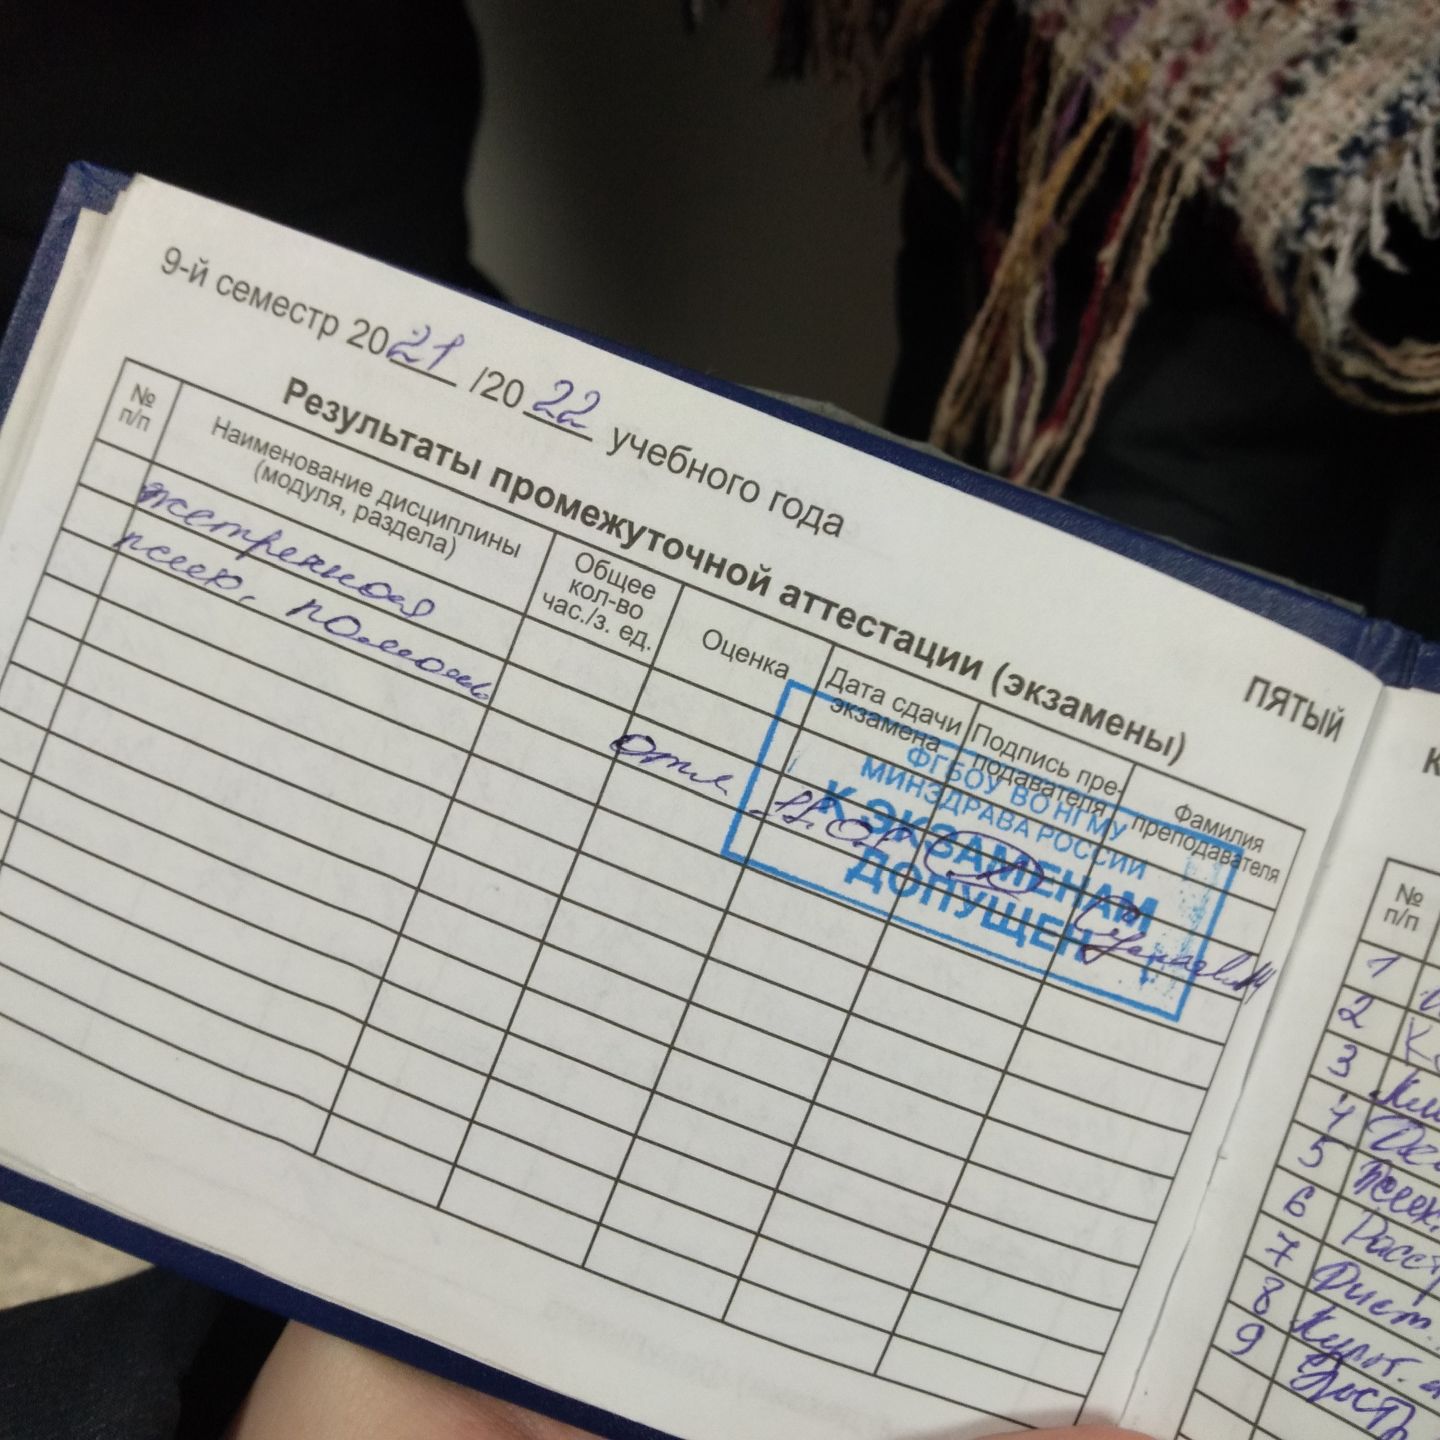 9-й семестр 2021/2022 учебного года
Результаты промежуточной аттестации (экзамены)
ПЯТЫЙ
№ п/п
Наименование дисциплины (модуля, раздела)
Общее кол-во час./з. ед.
Оценка
Дата сдачи экзамена
Подпись преподавателя
Фамилия преподавателя
экстренная
псих. помощь
отл
11.01
ФГБОУ ВО НГМУ
МИНЗДРАВА РОССИИ
К ЭКЗАМЕНАМ
ДОПУЩЕН
№ п/п
1
2
3
4
5
6
7
8
9